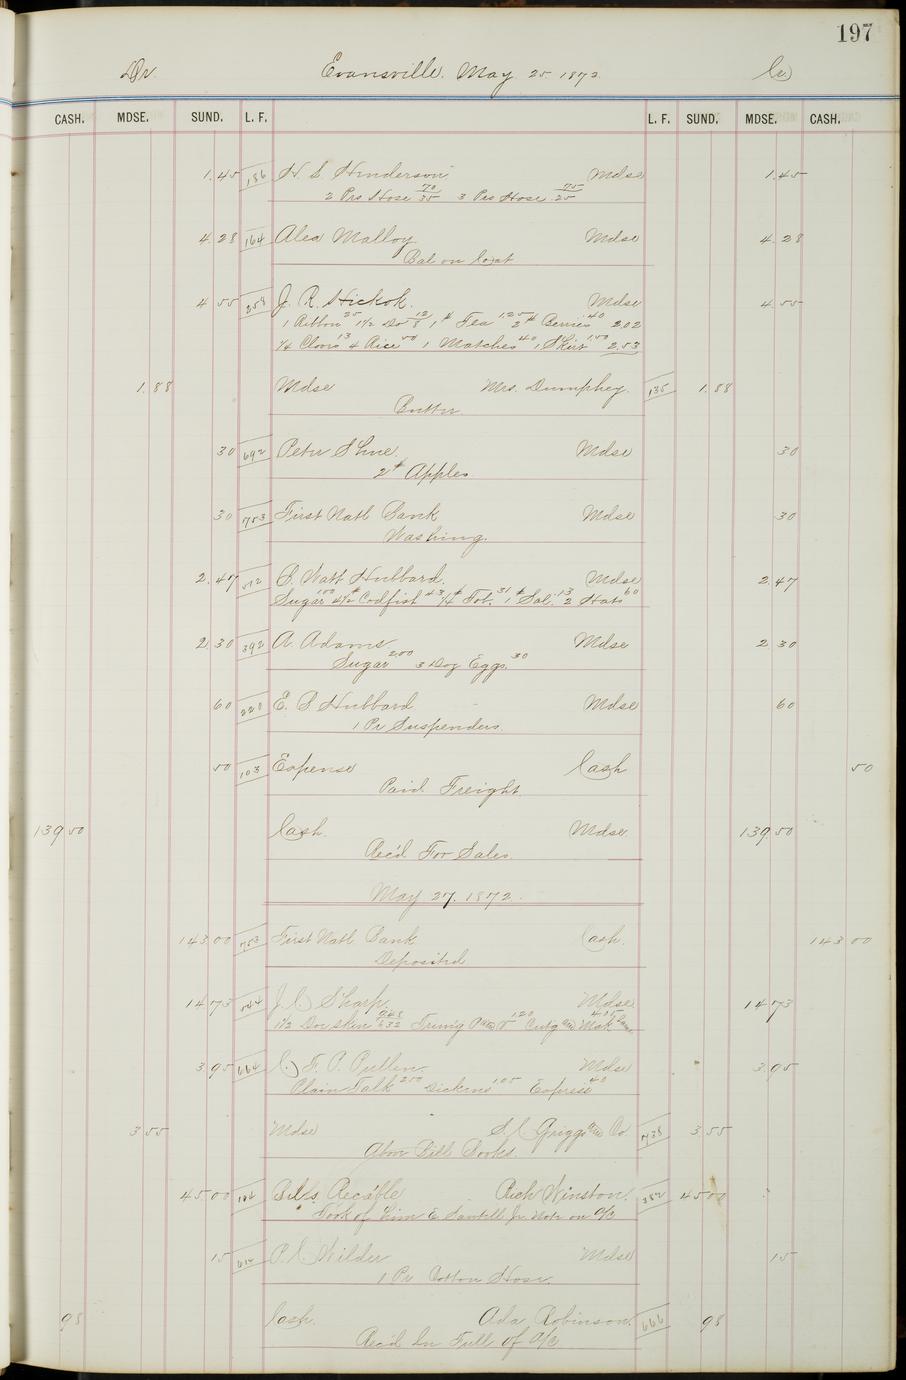 197
Dr. Evansville. May 25 1872. Cr
CASH. MDSE. SUND. L. F. L. F. SUND. MDSE. CASH.
1.45 186 H. S. Hinderson Mdse 1.45
2 Prs Hose 70/35 3 Prs Hose 75/25
4 28 164 Alex Malloy Mdse 4 28
Bal on Coat
4 55 258 J. R. Hickok. Mdse 4.55
1 Ribbon 25 1 1/2 Do 12/8 1# Tea 1.25 2# Berries 40 2.02
1/4 Cloves 13 4 Rice 50 1 Matches 40 1 Skirt 1.50 2.53
1.88 Mdse Mrs. Dumphey. 135 1.88
Butter
30 692 Peter Shue. Mdse 30
2# Apples
30 753 First Natl Bank Mdse 30
Washing.
2.47 572 S. Watt Hubbard. Mdse 2 47
Sugar 1.00 4 1/2# Codfish 43 1/4# Tob. 31 1# Sal. 13 2 Hats 60
2 30 392 A. Adams Mdse 2 30
Sugar 2.00 3 Doz Eggs. 30
60 220 E. S. Hubbard Mdse 60
1 Pr Suspenders.
50 103 Expense Cash 50
Paid Freight
139 50 Cash. Mdse. 139 50
Rec'd For Sales.
May 27. 1872.
143 00 753 First Natl Bank Cash. 143 00
Deposited
14 73 544 J. C. Sharp. Mdse 14 73
1 1/2 Doe skin 948/632 Trim'g 1.20 Cut'g Mak 4.05
3 95 664 C. F. P. Pullen. Mdse 3.95
Plain Talk 2.50 Dickens 1.05 Express 40
3 55 Mdse S. C. Griggs & Co. 738 3 55
Abov Bill Books.
45 00 104 Bills Rec'able Rich Winston. 382 45 00
Took of him E. Santell Jr. Note on a/c
15 614 P. C. Wilder Mdse 15
1 Pr Cotton Hose.
98 Cash. Ada Robinson. 666 98
Rec'd In Full of a/c